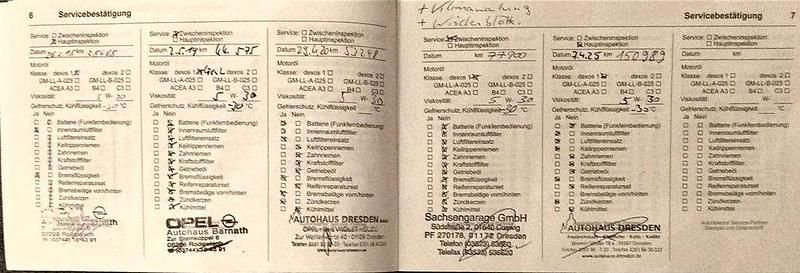 6 Servicebestätigung
Service: Zwischeninspektion
Hauptinspektion
Datum km
Motoröl
Klasse: dexos 1 dexos 2
GM-LL-A-025 GM-LL-B-025
ACEA A3 B4 C3
Viskosität: 5 W- 30
Gefrierschutz, Kühlflüssigkeit -30 °C
Ja Nein
Batterie (Funkfernbedienung)
Innenraumluftfilter
Luftfiltereinsatz
Keilrippenriemen
Zahnriemen
Kraftstofffilter
Getriebeöl
Bremsflüssigkeit
Reifenreparaturset
Bremsbeläge vorn/hinten
Zündkerzen
Kühlmittel
Service: Zwischeninspektion
Hauptinspektion
Datum 2.5.19 km 44 575
Motoröl
Klasse: dexos 2
GM-LL-A-025 GM-LL-B-025
ACEA A3 B4 C3
Viskosität: 5 W- 30
Gefrierschutz, Kühlflüssigkeit -30 °C
Ja Nein
Batterie (Funkfernbedienung)
Innenraumluftfilter
Luftfiltereinsatz
Keilrippenriemen
Zahnriemen
Kraftstofffilter
Getriebeöl
Bremsflüssigkeit
Reifenreparaturset
Bremsbeläge vorn/hinten
Zündkerzen
Kühlmittel
OPEL
Autohaus Barnath
Zur Bremskoppel 6
Service: Zwischeninspektion
Hauptinspektion
Datum km
Motoröl
Klasse: dexos 1 dexos 2
GM-LL-A-025 GM-LL-B-025
ACEA A3 B4 C3
Viskosität: 5 W- 30
Gefrierschutz, Kühlflüssigkeit °C
Ja Nein
Batterie (Funkfernbedienung)
Innenraumluftfilter
Luftfiltereinsatz
Keilrippenriemen
Zahnriemen
Kraftstofffilter
Getriebeöl
Bremsflüssigkeit
Reifenreparaturset
Bremsbeläge vorn/hinten
Zündkerzen
Kühlmittel
AUTOHAUS DRESDEN
Servicebestätigung 7
+ Klimawartung
+
Service: Zwischeninspektion
Hauptinspektion
Datum km 77900
Motoröl
Klasse: dexos 1 dexos 2
GM-LL-A-025 GM-LL-B-025
ACEA A3 B4 C3
Viskosität: 5 W- 30
Gefrierschutz, Kühlflüssigkeit -30 °C
Ja Nein
Batterie (Funkfernbedienung)
Innenraumluftfilter
Luftfiltereinsatz
Keilrippenriemen
Zahnriemen
Kraftstofffilter
Getriebeöl
Bremsflüssigkeit
Reifenreparaturset
Bremsbeläge vorn/hinten
Zündkerzen
Kühlmittel
Sachsengarage GmbH
Südstraße 2, 01640 Coswig
PF 270178, 01172 Dresden
Service: Zwischeninspektion
Hauptinspektion
Datum km 150989
Motoröl
Klasse: dexos 1 dexos 2
GM-LL-A-025 GM-LL-B-025
ACEA A3 B4 C3
Viskosität: 5 W- 30
Gefrierschutz, Kühlflüssigkeit -30 °C
Ja Nein
Batterie (Funkfernbedienung)
Innenraumluftfilter
Luftfiltereinsatz
Keilrippenriemen
Zahnriemen
Kraftstofffilter
Getriebeöl
Bremsflüssigkeit
Reifenreparaturset
Bremsbeläge vorn/hinten
Zündkerzen
Kühlmittel
AUTOHAUS DRESDEN
Service: Zwischeninspektion
Hauptinspektion
Datum km
Motoröl
Klasse: dexos 1 dexos 2
GM-LL-A-025 GM-LL-B-025
ACEA A3 B4 C3
Viskosität: W-
Gefrierschutz, Kühlflüssigkeit °C
Ja Nein
Batterie (Funkfernbedienung)
Innenraumluftfilter
Luftfiltereinsatz
Keilrippenriemen
Zahnriemen
Kraftstofffilter
Getriebeöl
Bremsflüssigkeit
Reifenreparaturset
Bremsbeläge vorn/hinten
Zündkerzen
Kühlmittel
Autorisierter Service-Partner
Stempel und Unterschrift